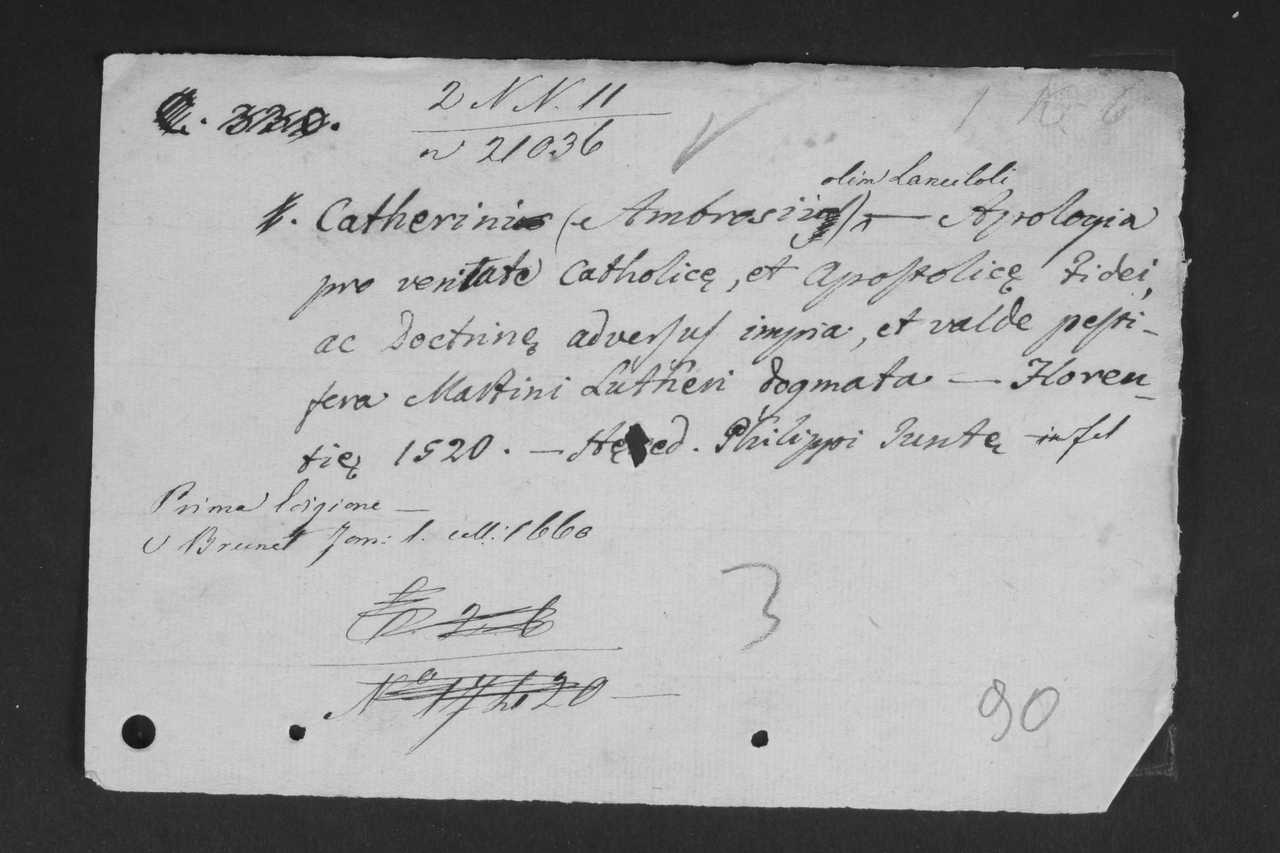 2 N N. 11
n 21036
1 K 6
olim Lanciloti
1. Catherini (Ambrosii) — Apologia
pro veritate Catholicę, et Apoſtolicę Fidei,
ac Doctrinę adverſuſ impia, et valde peſti-
fera Martini Lutheri dogmata — Floren-
tię 1520. — Hęred. Philippi Juntę in fol
Prima Edizione —
V Brunet Tom: 1. coll: 1660
2. 6
3
Nº
90